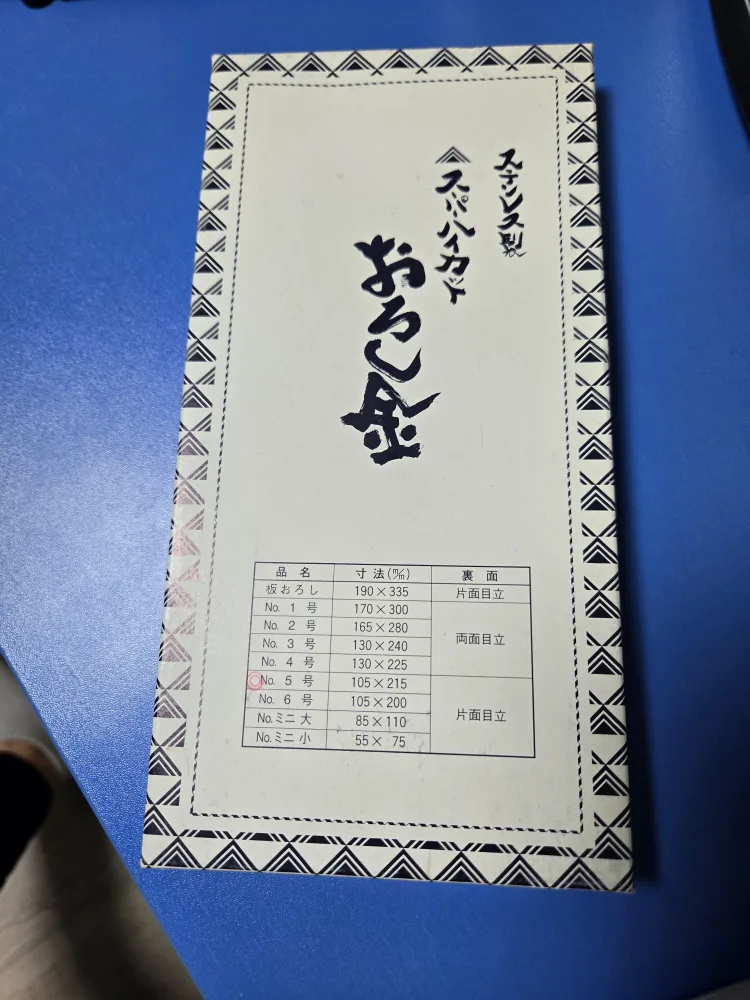 ステンレス製
スーパーハイカット
おろし金
品 名 寸 法(m/m) 裏 面
板おろし 190×335 片面目立
No. 1 号 170×300 両面目立
No. 2 号 165×280
No. 3 号 130×240
No. 4 号 130×225
No. 5 号 105×215 片面目立
No. 6 号 105×200
No.ミニ 大 85×110
No.ミニ 小 55× 75